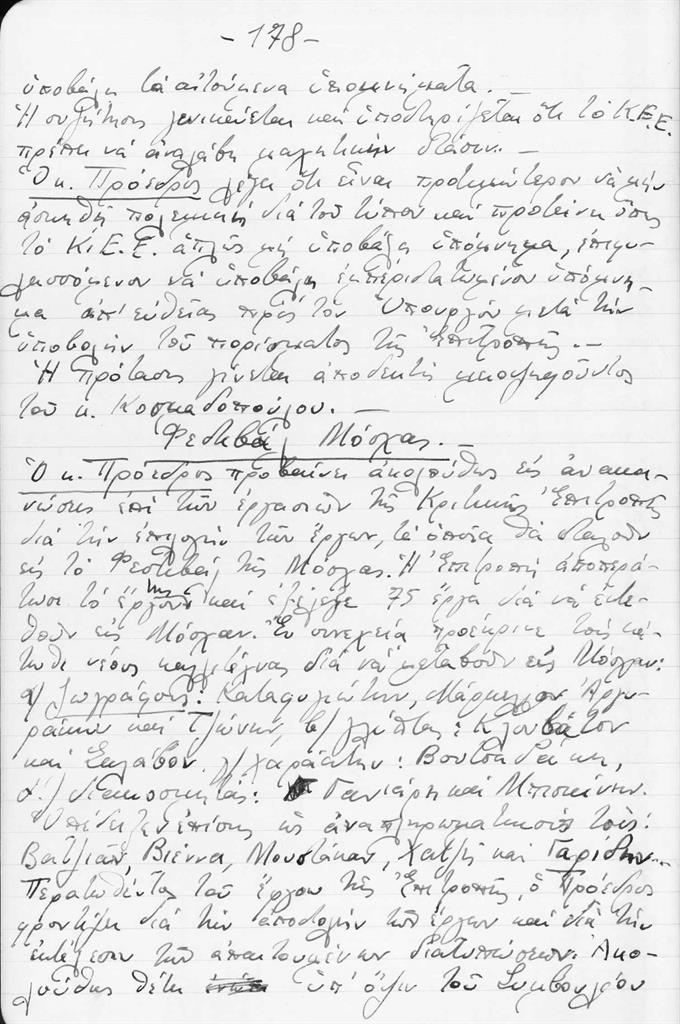 - 178 -
ὑποβάλῃ τὰ αἰτούμενα ὑπομνήματα. —
Ἡ συζήτησις γενικεύεται καὶ ὑποστηρίζεται ὅτι τὸ Κ.Ε.Ε.
πρέπει νὰ ἀναλάβῃ μαχητικὴν στάσιν. —
Ὁ κ. Πρόεδρος λέγει ὅτι εἶναι προτιμώτερον νὰ μὴν
ἀσκηθῇ πολεμικὴ διὰ τοῦ τύπου καὶ προτείνει ὅπως
τὸ Κ.Ε.Ε. ἁπλῶς μὴ ὑποβάλῃ ὑπόμνημα, ἐπιφυ-
λασσόμενον νὰ ὑποβάλῃ ἐμπεριστατωμένον ὑπόμνη-
μα ἀπ' εὐθείας πρὸς τὸν Ὑπουργὸν μετὰ τὴν
ὑποβολὴν τοῦ πορίσματος τῆς Ἐπιτροπῆς. —
Ἡ πρότασις γίνεται ἀποδεκτὴ μειοψηφοῦντος
τοῦ κ. Κοσμαδοπούλου. —
Φεστιβάλ Μόσχας. —
Ὁ κ. Πρόεδρος προβαίνει ἀκολούθως εἰς ἀνακοι-
νώσεις ἐπὶ τῶν ἐργασιῶν τῆς Κριτικῆς Ἐπιτροπῆς
διὰ τὴν ἐπιλογὴν τῶν ἔργων, τὰ ὁποῖα θὰ σταλοῦν
εἰς τὸ Φεστιβάλ τῆς Μόσχας. Ἡ Ἐπιτροπὴ ἀπεπερά-
τωσε τὸ ἔργον της καὶ ἐξέλεξε 75 ἔργα διὰ νὰ ἐκτε-
θοῦν εἰς Μόσχαν. Ἐν συνεχείᾳ προέκρινε τοὺς κά-
τωθι νέους καλλιτέχνας διὰ νὰ μεταβοῦν εἰς Μόσχαν:
α/ Ζωγράφους: Καταφυγιώτην, Μάρκελλον Ἀργυ-
ράκην καὶ Τζώνην, β/ γλύπτας: Κλουβάτον
καὶ Σκλάβον. γ/ Χαράκτην: Βουτσαδάκη,
δ'/ διακοσμητάς: Γανιάρη καὶ Μποκίνην.
Ὑπέδειξεν ἐπίσης ὡς ἀναπληρωματικοὺς τούς:
Βατζιᾶν, Βιέννα, Μουστάκαν, Χατζῆ καὶ Γαρίδην...
Περατωθέντος τοῦ ἔργου τῆς Ἐπιτροπῆς, ὁ Πρόεδρος
φροντίζει διὰ τὴν ἀποστολὴν τῶν ἔργων καὶ διὰ τὴν
ἐκτέλεσιν τῶν ἀπαιτουμένων διατυπώσεων. Ἀκο-
λούθως θέτει ὑπ' ὄψιν τοῦ Συμβουλίου